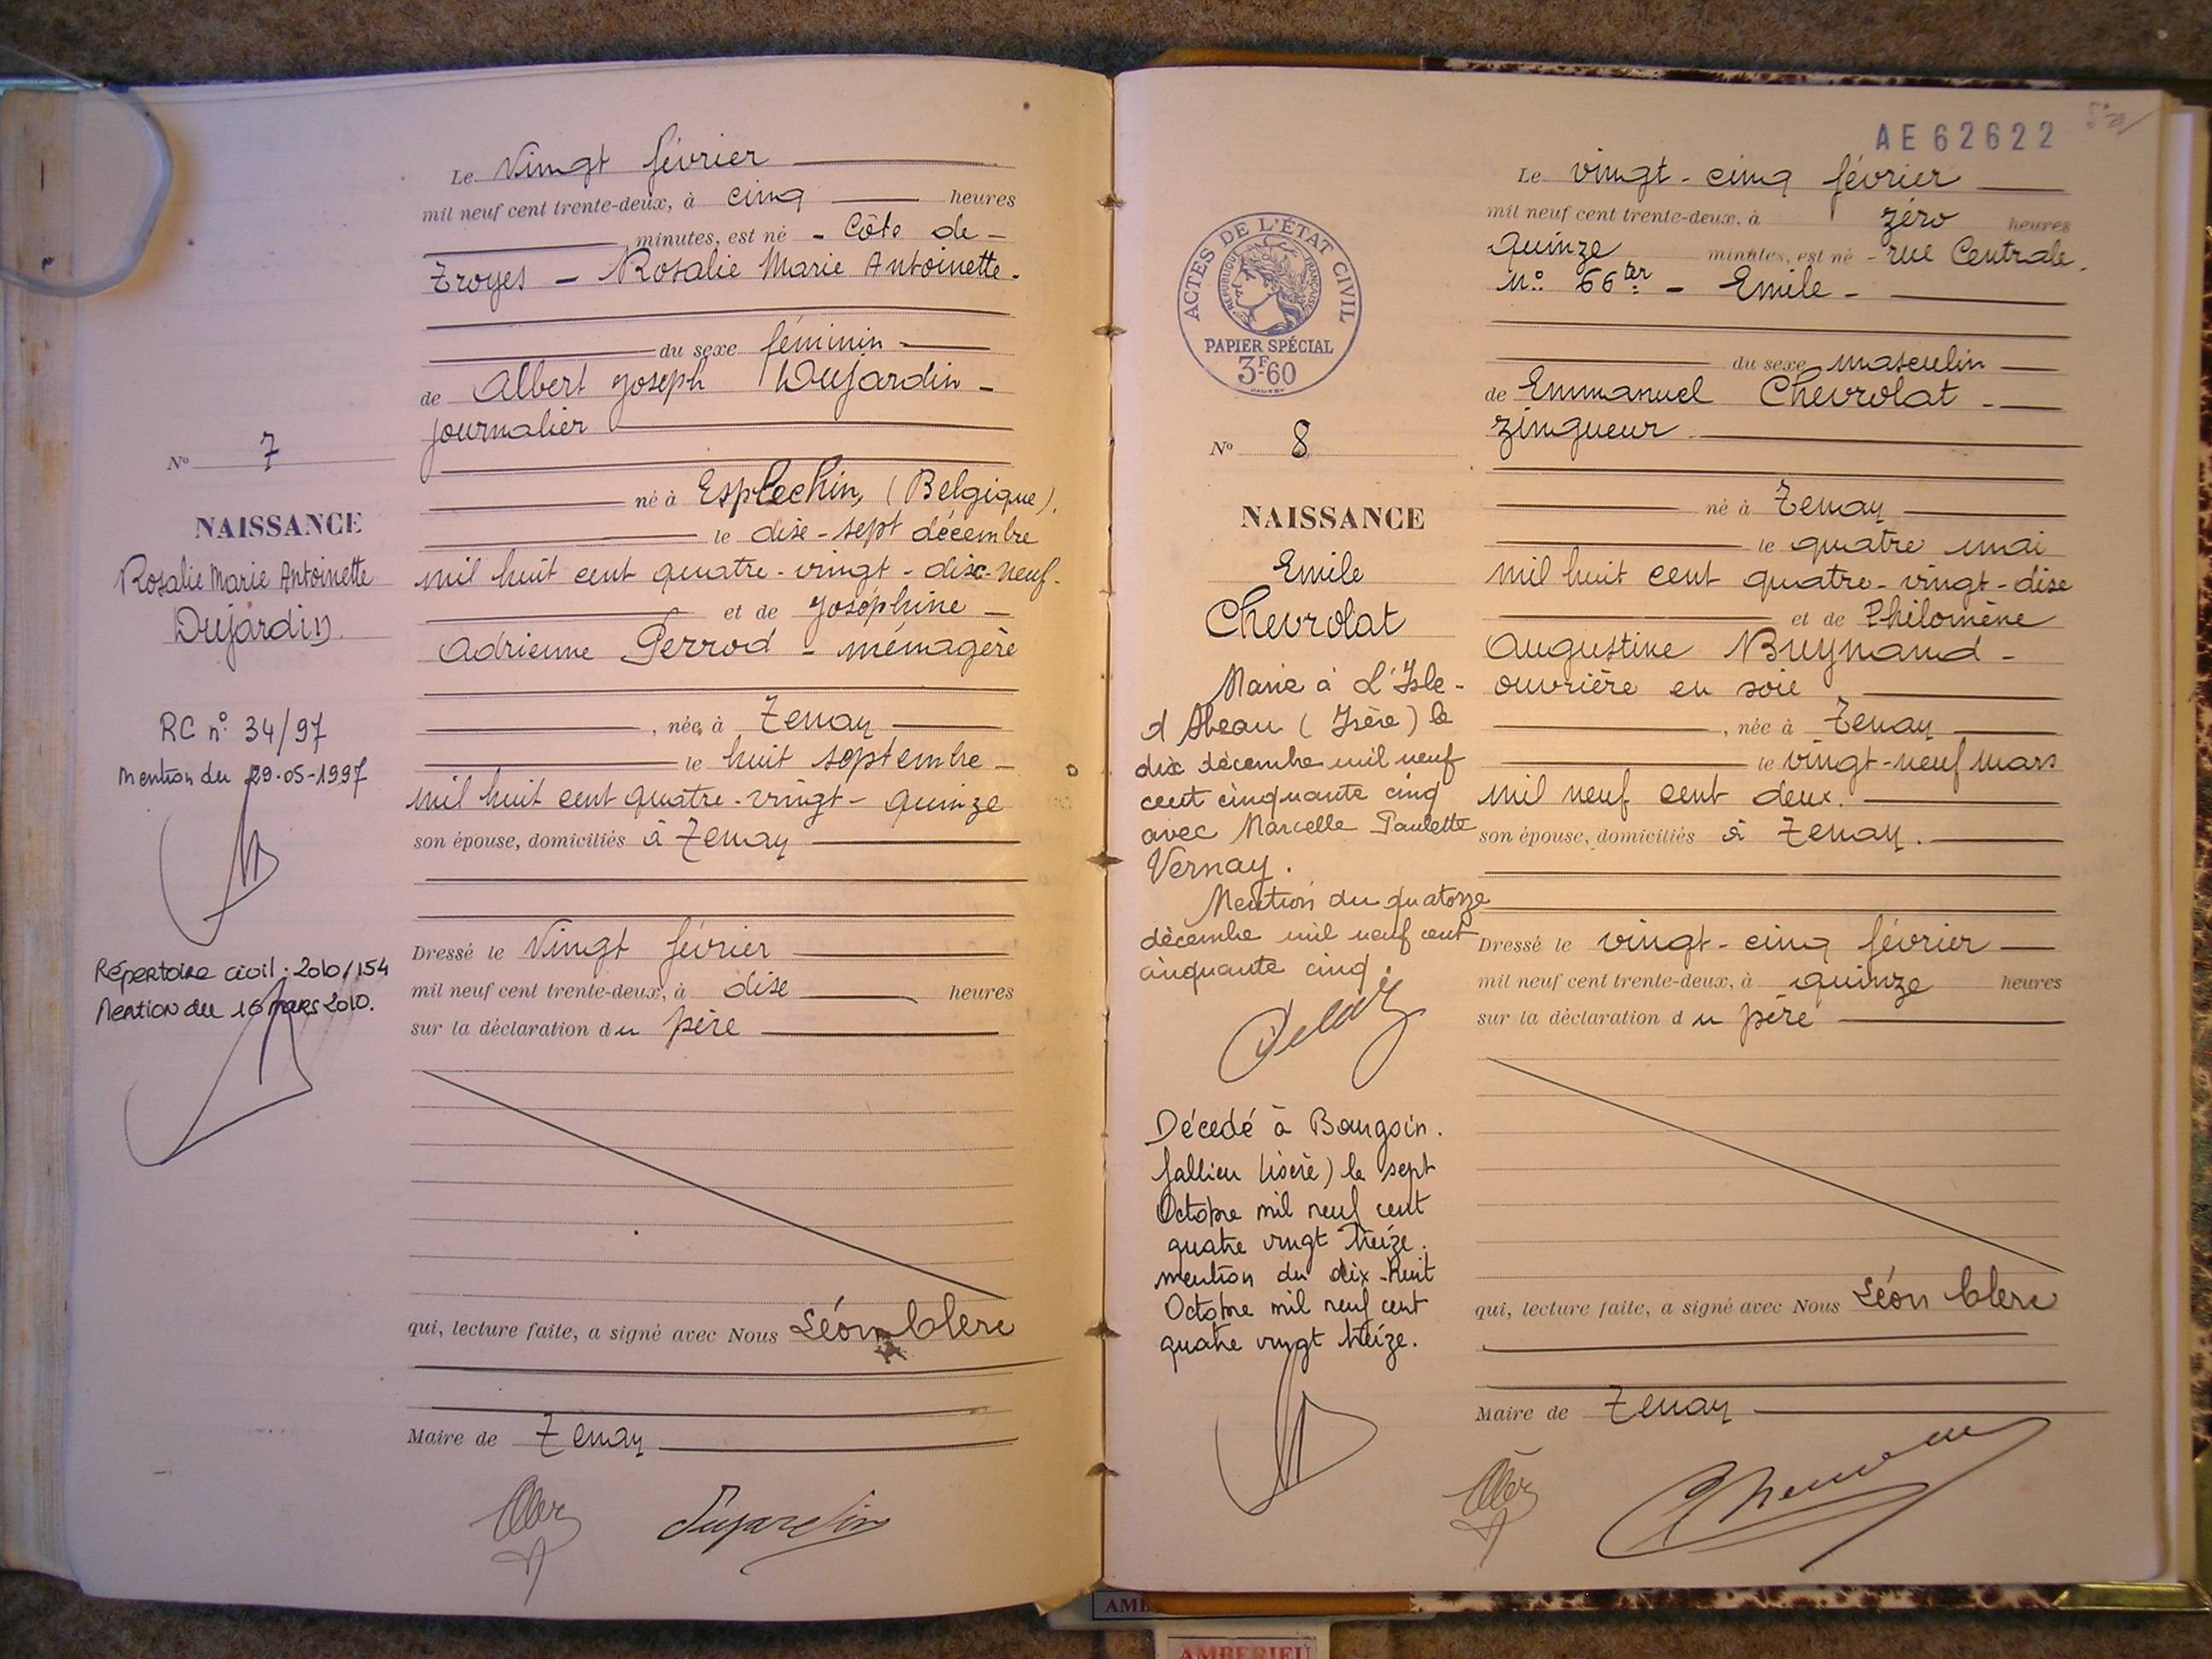 Le Vingt février
mil neuf cent trente-deux, à cinq heures
minutes, est né - Côte de -
Troyes - Rosalie Marie Antoinette.
du sexe féminin
de Albert Joseph Dujardin -
journalier
né à Esplechin, (Belgique),
le dise-sept décembre
mil huit cent quatre-vingt-disc-neuf.
et de Joséphine -
Adrienne Perrod - ménagère
, née à Tenay
le huit septembre -
mil huit cent quatre-vingt-quinze
son épouse, domiciliés à Tenay
Dressé le Vingt février
mil neuf cent trente-deux, à dise heures
sur la déclaration du père
qui, lecture faite, a signé avec Nous Léon Clerc
Maire de Tenay
Dujardin
No 7
NAISSANCE
Rosalie Marie Antoinette
Dujardin
RC n° 34/97
mention du 29-05-1997
Répertoire civil : 2010/154
Mention du 16 mars 2010.
AE62622
Le vingt-cinq février
mil neuf cent trente-deux, à zéro heures
quinze minutes, est né - rue Centrale.
N° 66ter - Emile -
du sexe masculin
de Emmanuel Chevrolat -
zingueur
né à Tenay
le quatre mai
mil huit cent quatre-vingt-dise
et de Philomène
Augustine Buynand -
ouvrière en soie,
, née à Tenay
le vingt-neuf mars
mil neuf cent deux.
son épouse, domiciliés à Tenay.
Dressé le vingt-cinq février
mil neuf cent trente-deux, à quinze heures
sur la déclaration du père
qui, lecture faite, a signé avec Nous Léon Clerc
Maire de Tenay
ACTES DE L'ÉTAT CIVIL
RÉPUBLIQUE FRANÇAISE
PAPIER SPÉCIAL
3F60
No 8
NAISSANCE
Emile
Chevrolat
Marié à L'Isle-
d'Abeau (Isère) le
dix décembre mil neuf
cent cinquante cinq
avec Marcelle Paulette
Vernay.
Mention du quatorze
décembre mil neuf cent
cinquante cinq.
Décedé à Bourgoin.
Jallieu (isère) le sept
Octobre mil neuf cent
quatre vingt treize.
mention du dix-huit
Octobre mil neuf cent
quatre vingt treize.
AMBERIEU